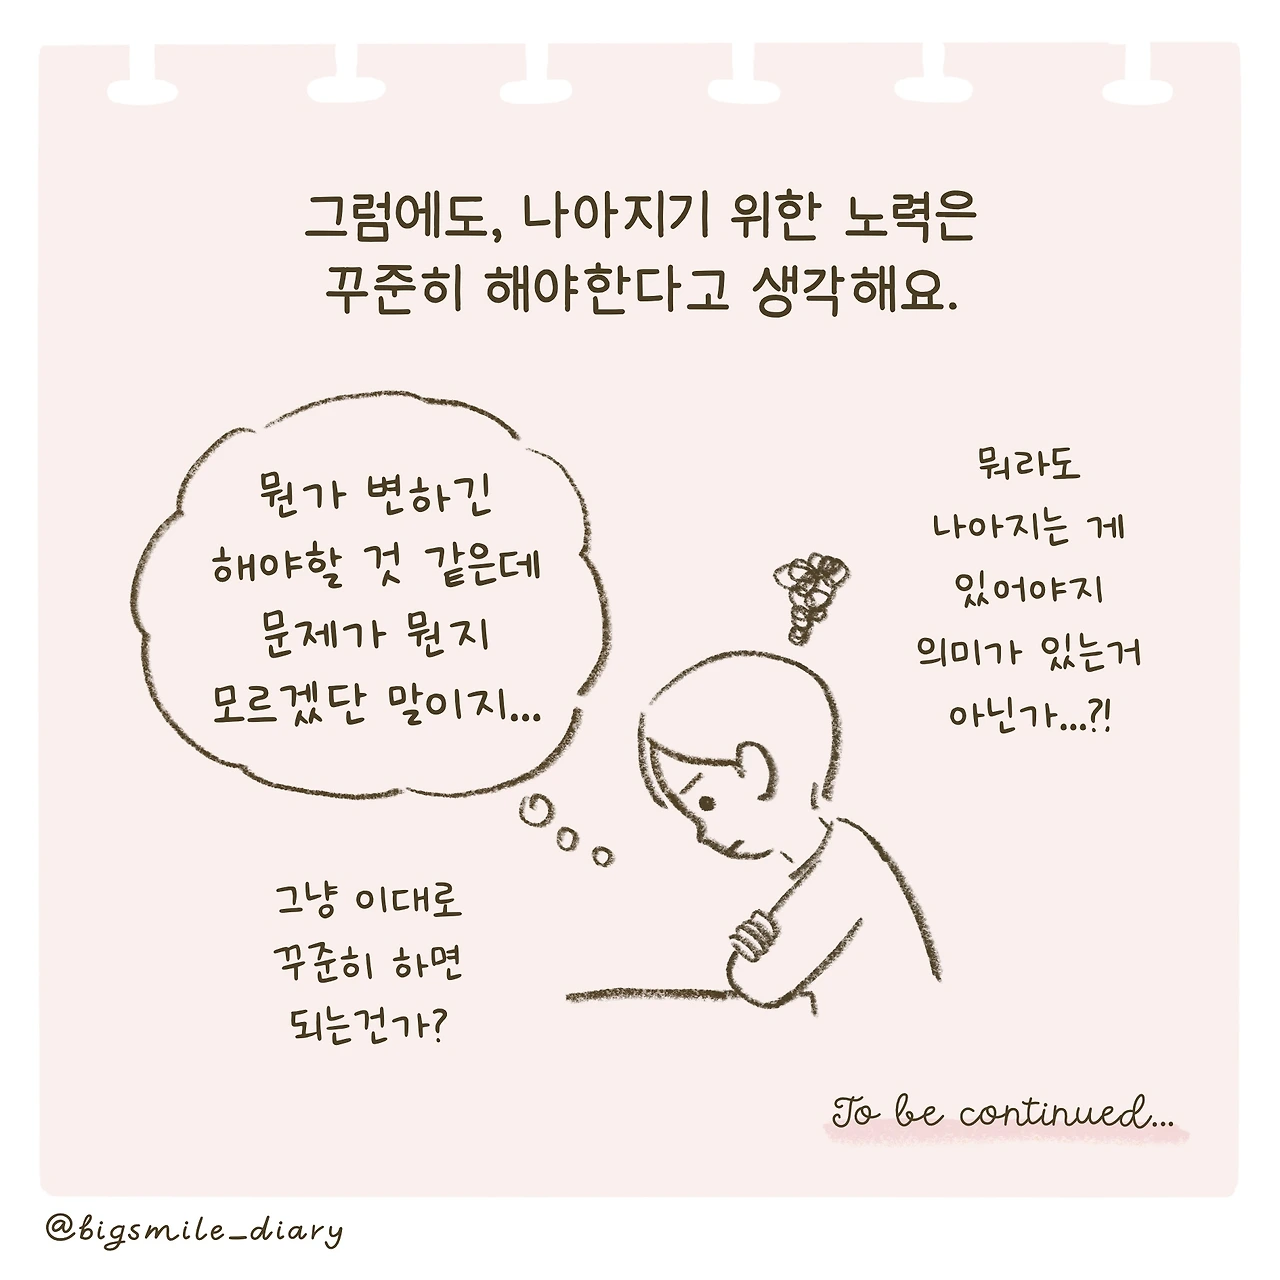 그럼에도, 나아지기 위한 노력은
꾸준히 해야한다고 생각해요.
뭔가 변하긴
해야할 것 같은데
문제가 뭔지
모르겠단 말이지...
뭐라도
나아지는 게
있어야지
의미가 있는거
아닌가...?!
그냥 이대로
꾸준히 하면
되는건가?
To be continued...
@bigsmile_diary